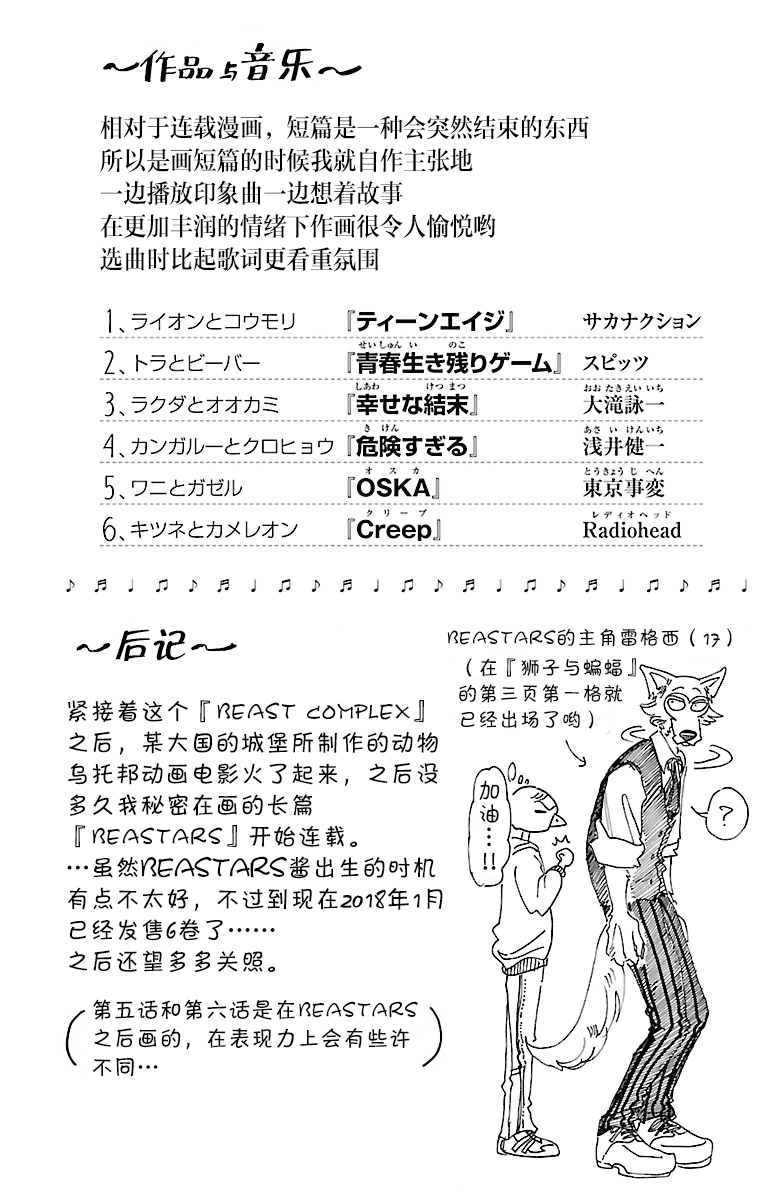 ~作品与音乐~
相对于连载漫画，短篇是一种会突然结束的东西
所以是画短篇的时候我就自作主张地
一边播放印象曲一边想着故事
在更加丰润的情绪下作画很令人愉悦哟
选曲时比起歌词更看重氛围
1、ライオンとコウモリ 『ティーンエイジ』 サカナクション
せいしゅん い のこ
2、トラとビーバー 『青春生き残りゲーム』 スピッツ
しあわ けつまつ おおたきえいいち
3、ラクダとオオカミ 『幸せな結末』 大滝詠一
きけん あさい けんいち
4、カンガルーとクロヒョウ 『危険すぎる』 浅井健一
オスカ とうきょうじへん
5、ワニとガゼル 『OSKA』 東京事変
クリープ レディオヘッド
6、キツネとカメレオン 『Creep』 Radiohead
~后记~
紧接着这个『BEAST COMPLEX』
之后，某大国的城堡所制作的动物
乌托邦动画电影火了起来，之后没
多久我秘密在画的长篇
『BEASTARS』开始连载。
…虽然BEASTARS酱出生的时机
有点不太好，不过到现在2018年1月
已经发售6卷了……
之后还望多多关照。
（第五话和第六话是在BEASTARS
之后画的，在表现力上会有些许
不同…）
BEASTARS的主角雷格西（17）
（在『狮子与蝙蝠』
的第三页第一格就
已经出场了哟）
加油…!!
?